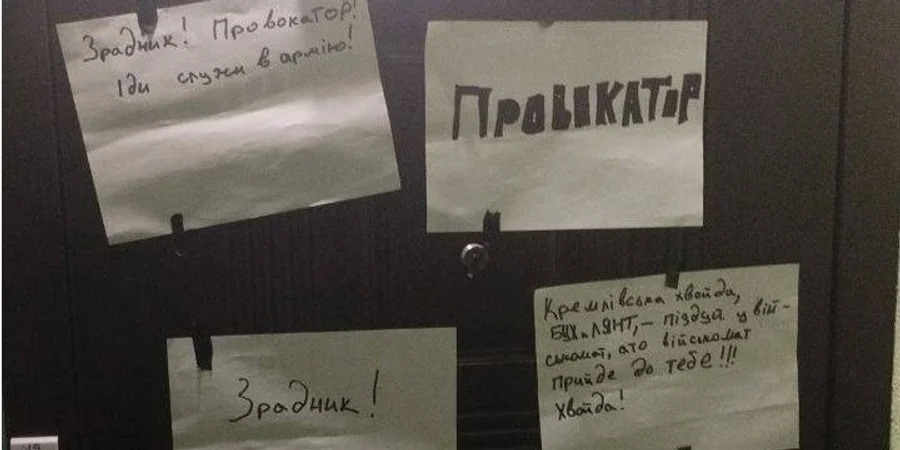 Зрадник! Провокатор!
Іди служи в армію!
ПРОВОКАТОР
Зрадник!
Кремлівська хвойда,
– піздуй у вій-
ськомат, ато військомат
прийде до тебе!!!
Хвойда!